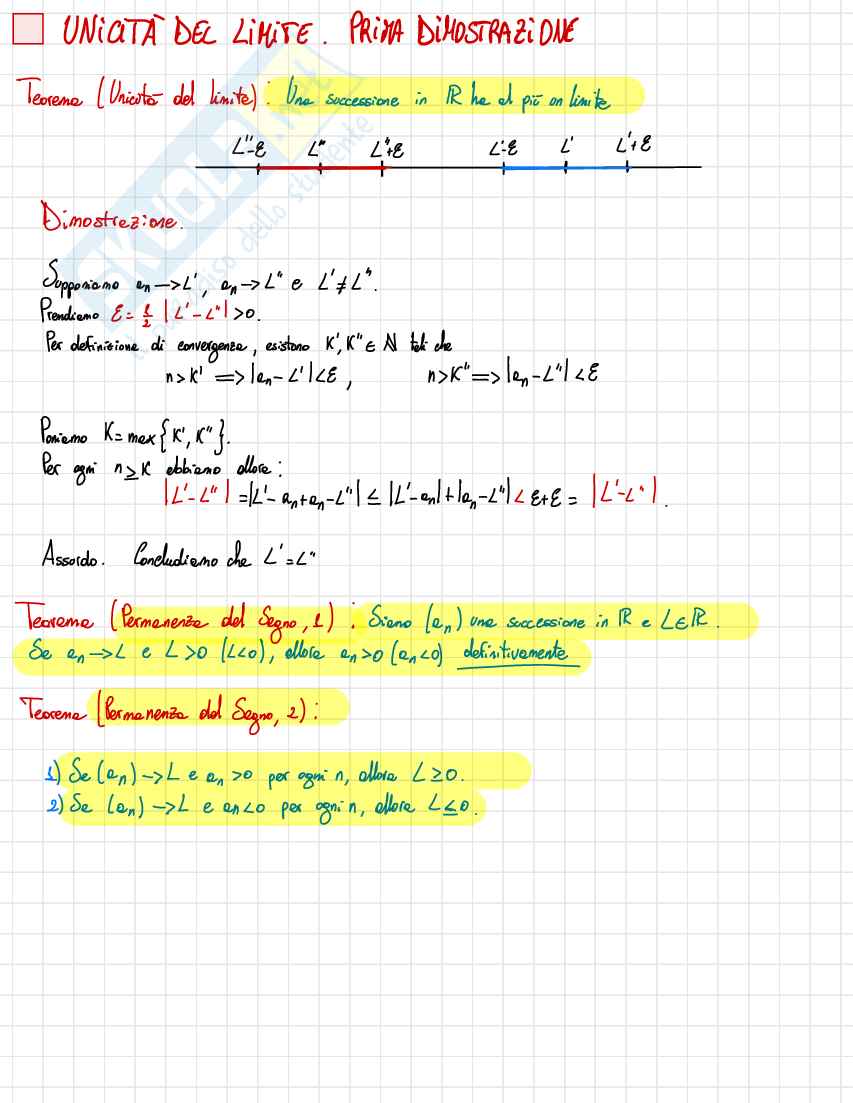 UNICITÀ DEL LIMITE. PRIMA DIMOSTRAZIONE
Teorema (Unicità del limite): Una successione in ℝ ha al più un limite
L"-ε L" L"+ε L'-ε L' L'+ε
Dimostrazione.
Supponiamo aₙ → L', aₙ → L" e L' ≠ L".
Prendiamo ε = 1/2 |L' - L"| > 0.
Per definizione di convergenza, esistono K', K" ∈ ℕ tali che
n > K' ⟹ |aₙ - L'| < ε, n > K" ⟹ |aₙ - L"| < ε
Poniamo K = max{K', K"}.
Per ogni n ≥ K abbiamo allora:
|L' - L"| = |L' - aₙ + aₙ - L"| ≤ |L' - aₙ| + |aₙ - L"| < ε + ε = |L' - L"|.
Assurdo. Concludiamo che L' = L"
Teorema (Permanenza del Segno, 1): Siano (aₙ) una successione in ℝ e L ∈ ℝ.
Se aₙ → L e L > 0 (L < 0), allora aₙ > 0 (aₙ < 0) definitivamente
Teorema (Permanenza del Segno, 2):
1) Se (aₙ) → L e aₙ > 0 per ogni n, allora L ≥ 0.
2) Se (aₙ) → L e an < 0 per ogni n, allora L ≤ 0.
SKUOLA.net
dello studente